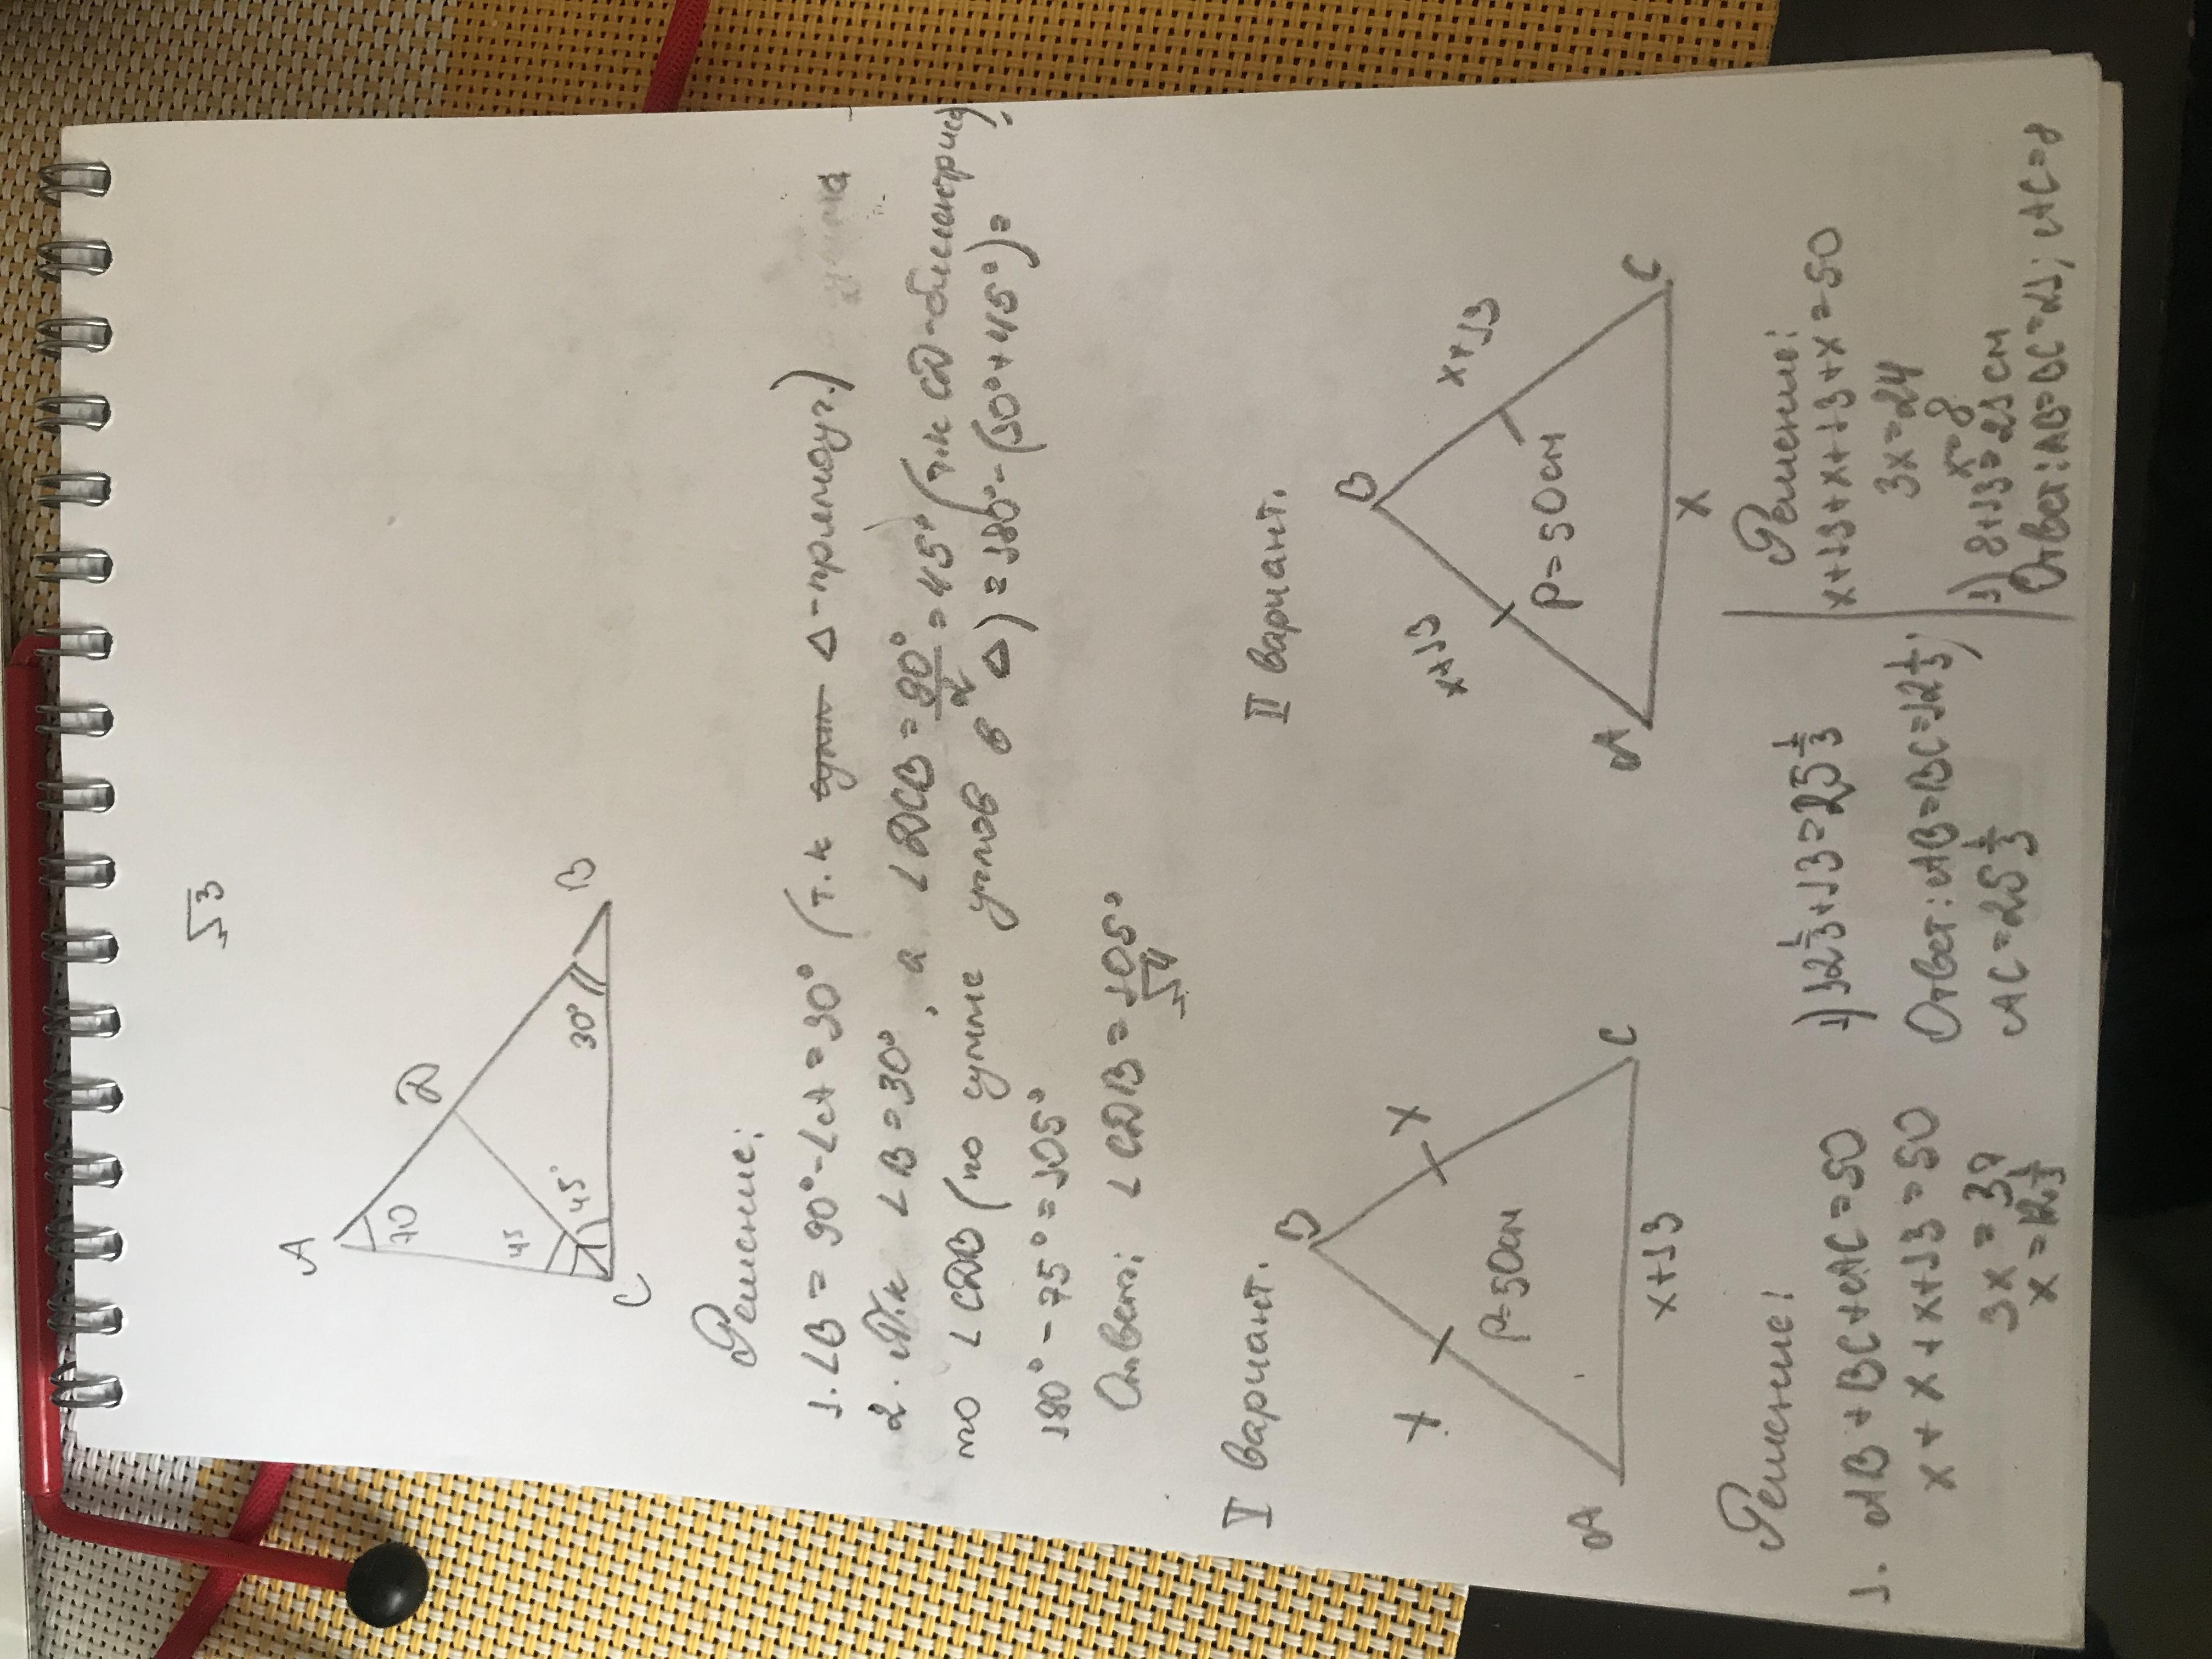 √3
A
D
B
C
70
45
45°
30°
Решение:
1. ∠B = 90° - ∠A = 30° (т.к Δ - прямоуг.)
2. Т.к ∠B = 30°, а ∠DCB = 90°/2 = 45° (т.к CD - биссектриса)
то ∠CDB (по сумме углов в Δ) = 180° - (30° + 45°) =
180° - 75° = 105°
Ответ: ∠CDB = 105°
√4
I вариант.
B
X
X
P=50см
A
C
x+13
Решение!
1. AB + BC + AC = 50
x + x + x + 13 = 50
3x = 37
x = 12 1/3
1) 12 1/3 + 13 = 25 1/3
Ответ: AB = BC = 12 1/3;
AC = 25 1/3
II вариант.
B
x+13
x+13
P=50см
A
C
x
Решение:
x+13+x+13+x=50
3x=24
x=8
1) 8+13=21 см
Ответ: AB=BC=21; AC=8